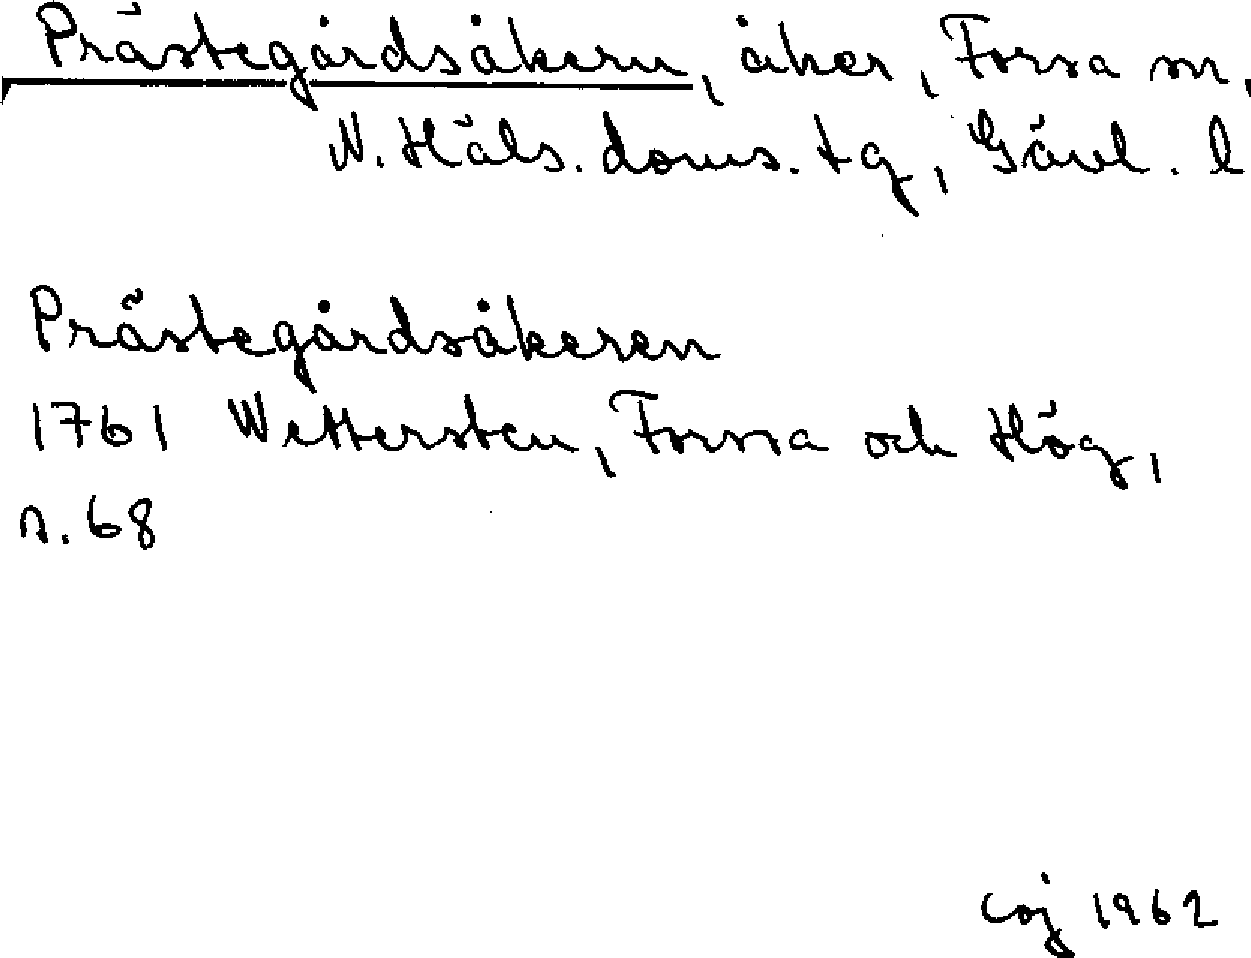 Prästegårdsåkern, åker, Forsa sn,
N. Häls. doms. tg, Gävl. l
Prästegårdsåkeren
1761 Wettersten, Forssa och Hög,
s. 68
coj 1962